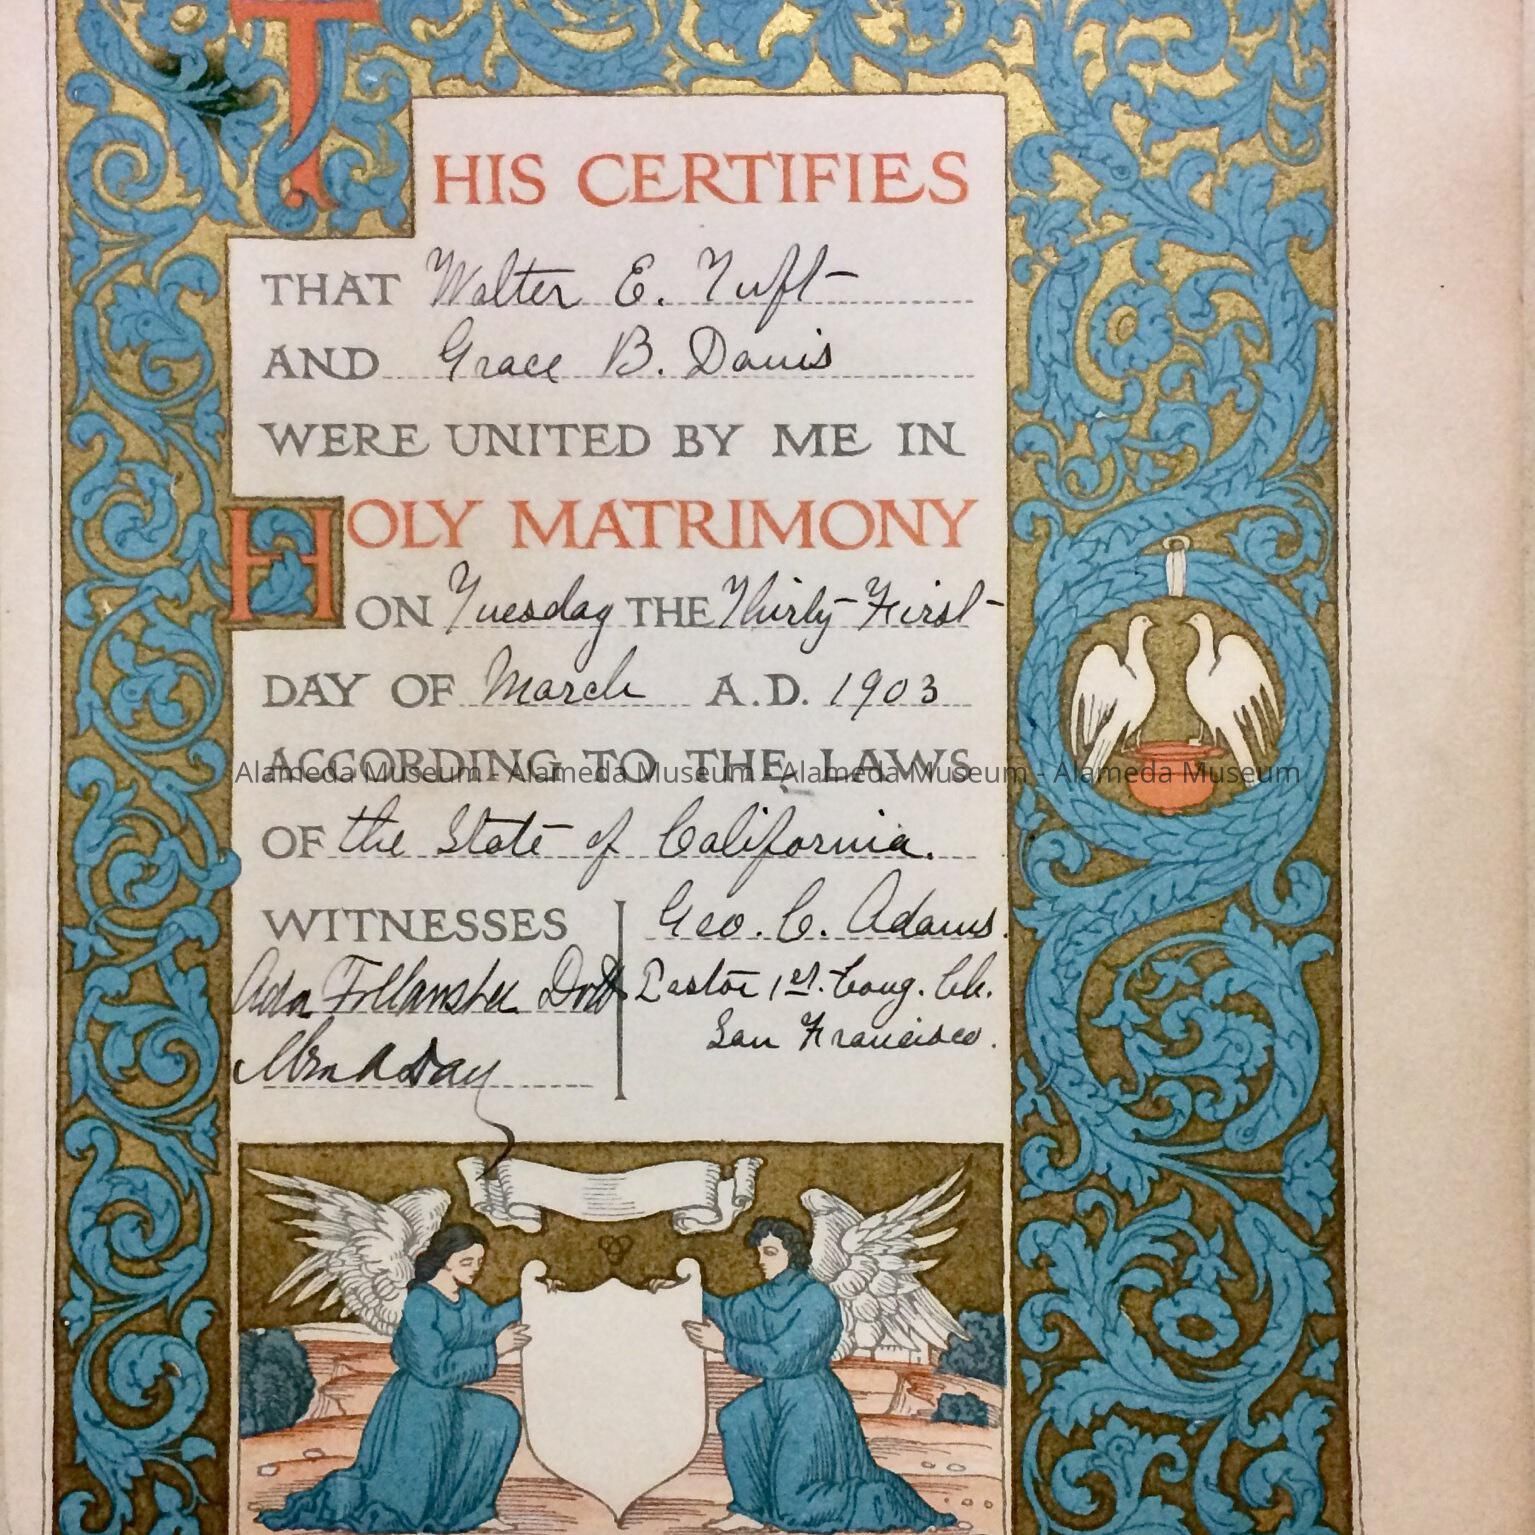 THIS CERTIFIES
THAT Walter E. Tuft
AND Grace B. Davis
WERE UNITED BY ME IN
HOLY MATRIMONY
ON Tuesday THE Thirty-First
DAY OF March A.D. 1903
ACCORDING TO THE LAWS
Alameda Museum - Alameda Museum - Alameda Museum - Alameda Museum
OF the State of California.
WITNESSES
Ada Follansbee
Geo. C. Adams.
Pastor 1st. Cong. Ch.
San Francisco.